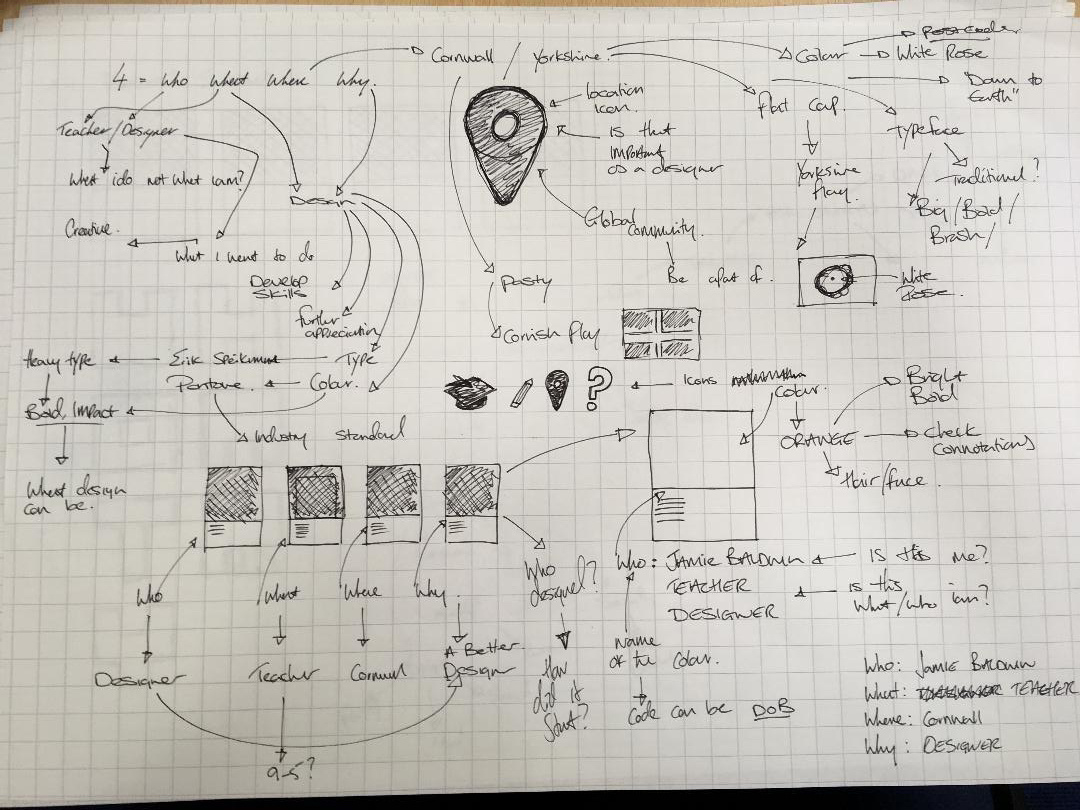 4 = Who What Where Why.
Cornwall / Yorkshire.
Colour
Postcode
White Rose
"Down to
Earth"
location
icon.
Is that
important
as a designer
flat cap.
Typeface
Teacher/Designer
What i do not what i am?
Yorkshire
flag.
Traditional?
Big/Bold/
Brash/
Design
Global
community.
Creative.
What I want to do
Be apart of.
White
Rose.
Develop
Skills
Pasty
further
appreciation
Cornish flag
Type
Erik
Heavy type
Colour.
Pantone.
Icons
Colour.
Bright
Bold
Bold, Impact
Industry standard
ORANGE
Check
connotations
Hair/face.
What design
can be.
Who
What
Where
Why.
Who
designed?
Who: JAMIE BALDWIN
TEACHER
DESIGNER
Is this me?
Is this
What/who i am?
Designer
Teacher
Cornwall
A Better
Designer
How
did it
start?
Name
of the Colour.
Code can be DOB
9-5?
Who: JAMIE BALDWIN
What: TEACHER
Where: Cornwall
Why: DESIGNER